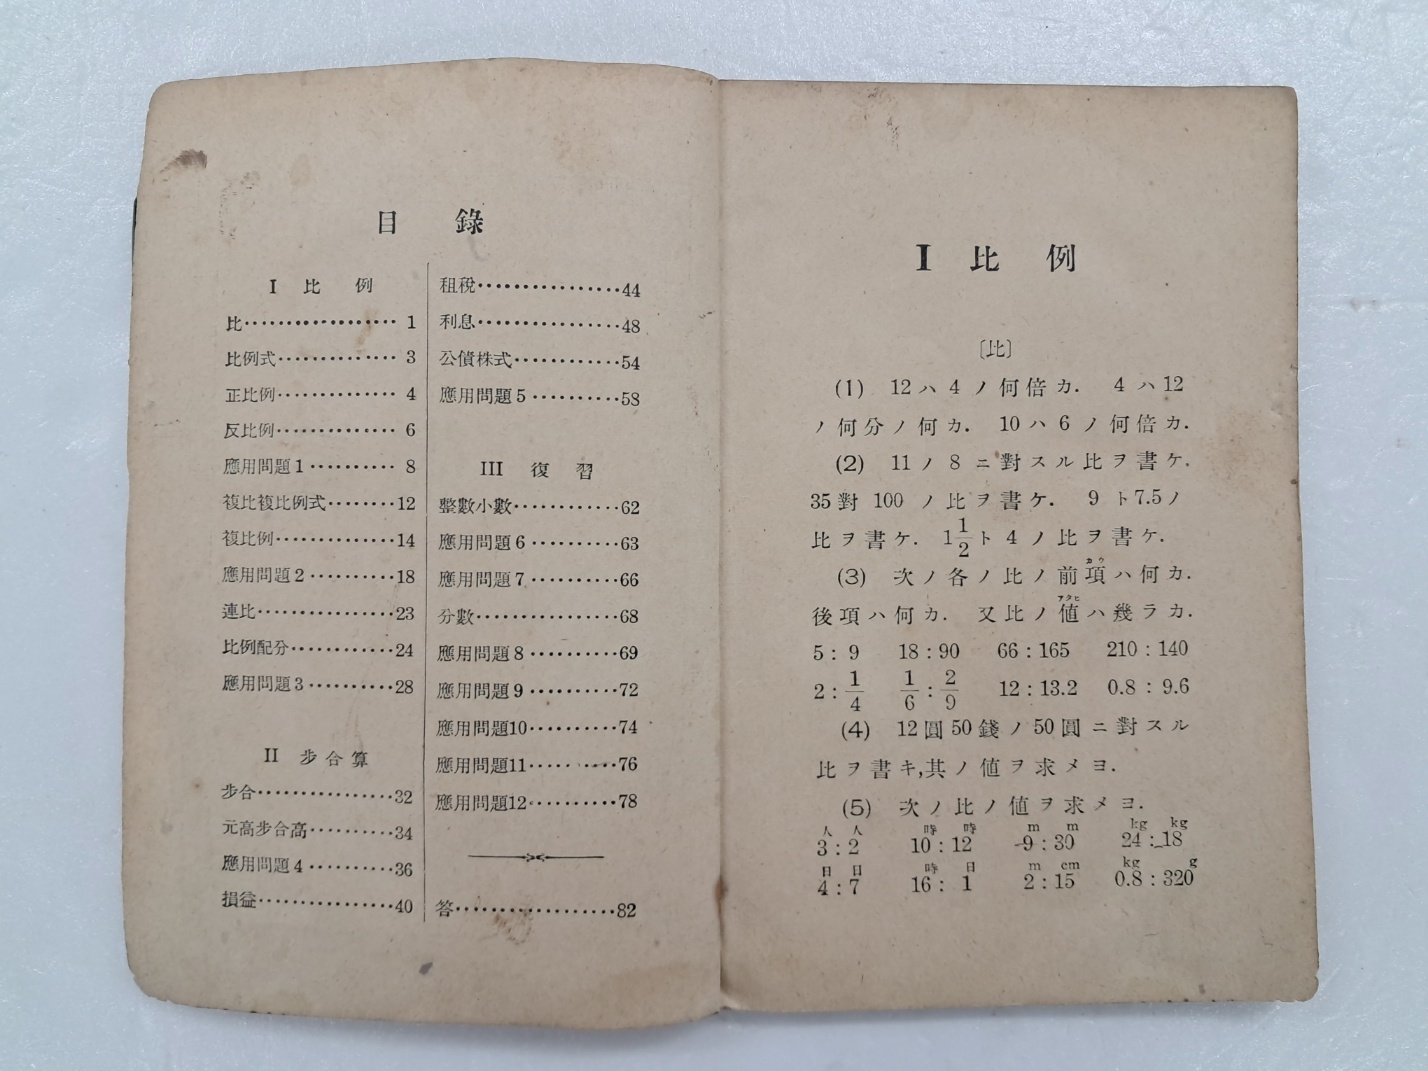 目錄
I 比例
比 1
比例式 3
正比例 4
反比例 6
應用問題1 8
複比複比例式 12
複比例 14
應用問題2 18
連比 23
比例配分 24
應用問題3 28
II 步合算
步合 32
元高步合高 34
應用問題4 36
損益 40
租稅 44
利息 48
公債株式 54
應用問題5 58
III 復習
整數小數 62
應用問題6 63
應用問題7 66
分數 68
應用問題8 69
應用問題9 72
應用問題10 74
應用問題11 76
應用問題12 78
答 82
I 比例
〔比〕
(1) 12ハ4ノ何倍カ. 4ハ12
ノ何分ノ何カ. 10ハ6ノ何倍カ.
(2) 11ノ8ニ對スル比ヲ書ケ.
35對100ノ比ヲ書ケ. 9ト7.5ノ
比ヲ書ケ. 1 1/2ト4ノ比ヲ書ケ.
(3) 次ノ各ノ比ノ前項ハ何カ.
後項ハ何カ. 又比ノ値ハ幾ラカ.
5:9 18:90 66:165 210:140
2:1/4 1/6:2/9 12:13.2 0.8:9.6
(4) 12圓50錢ノ50圓ニ對スル
比ヲ書キ,其ノ値ヲ求メヨ.
(5) 次ノ比ノ値ヲ求メヨ.
人 人 時 時 m m kg kg
3:2 10:12 9:30 24:18
日 日 時 日 m cm kg g
4:7 16:1 2:15 0.8:320